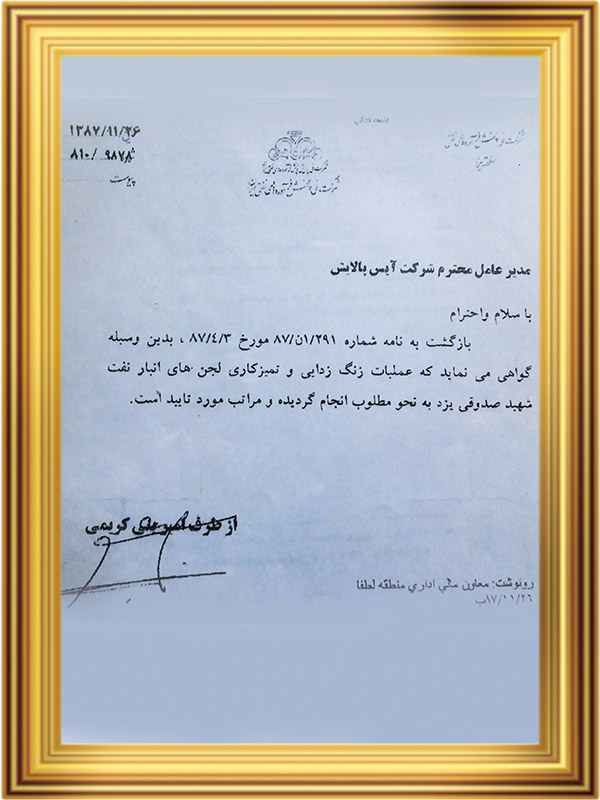 ۱۳۸۷/۱۱/۲۶
۸۱۰/ ۹۸۷۸
پیوست
شرکت ملی پخش فرآورده‌های نفتی ایران
مدیر عامل محترم شرکت آیس پالایش
با سلام واحترام
بازگشت به نامه شماره ۸۷/ن/۱/۲۹۱ مورخ ۸۷/٤/۳ ، بدین وسیله
گواهی می نماید که عملیات زنگ زدایی و تمیزکاری لجن های انبار نفت
شهید صدوقی یزد به نحو مطلوب انجام گردیده و مراتب مورد تایید است.
از طرف امیر علی کریمی
رونوشت: معاون مالي اداري منطقه لطفا
۹۷/۱۱/۲۶ب